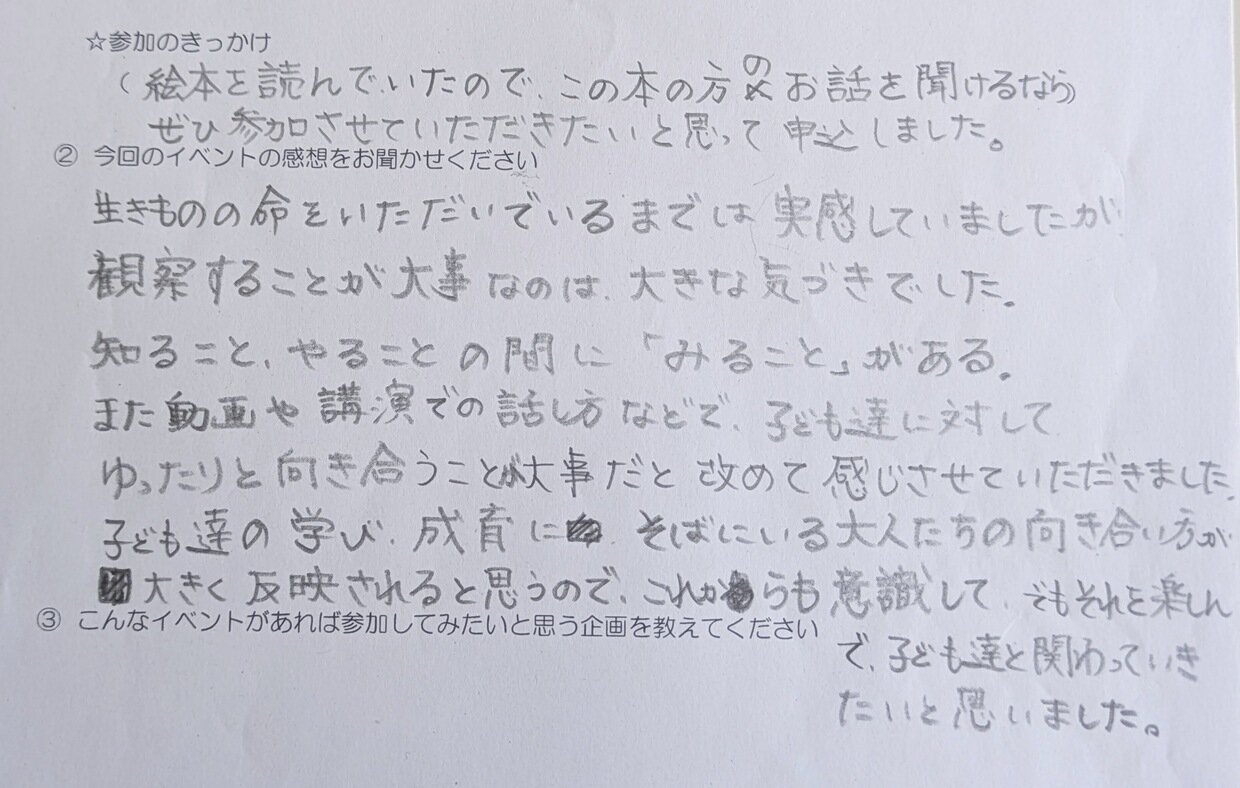 ☆参加のきっかけ
(絵本を読んでいたので、この本の方のお話を聞けるなら)
ぜひ参加させていただきたいと思って申込しました。
② 今回のイベントの感想をお聞かせください
生きものの命をいただいでいるまでは実感していましたが
観察することが大事なのは、大きな気づきでした。
知ること、やることの間に「みること」がある。
また動画や講演での話し方などで、子ども達に対して
ゆったりと向き合うことが大事だと改めて感じさせていただきました。
子ども達の学び、成育に、そばにいる大人たちの向き合い方が
大きく反映されると思うので、これからも意識して、でもそれを楽しん
③ こんなイベントがあれば参加してみたいと思う企画を教えてください
で、子ども達と関わっていき
たいと思いました。